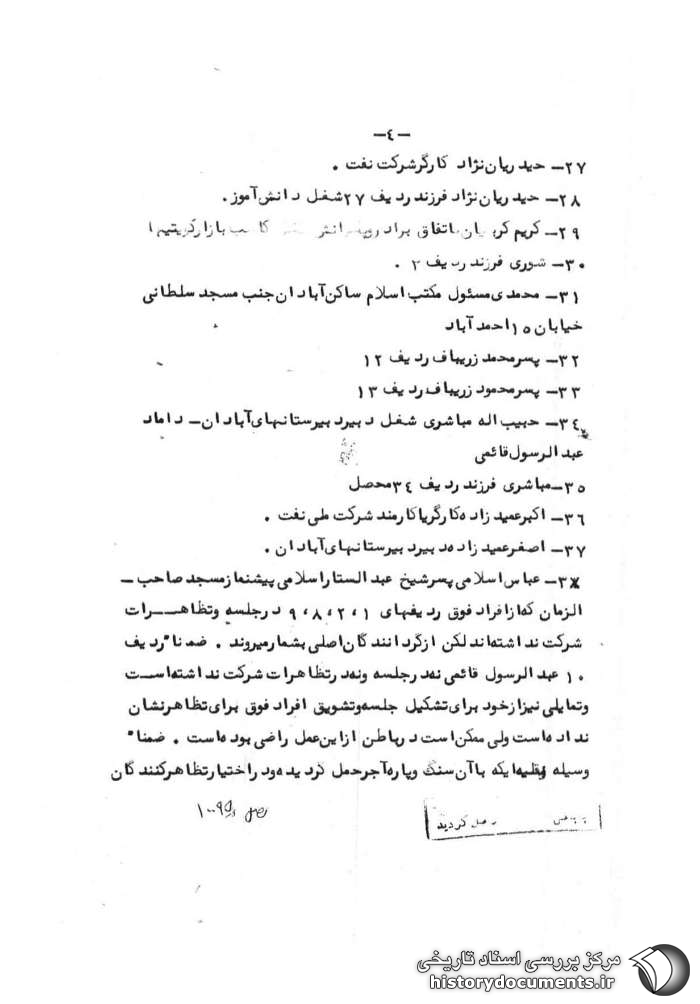 -٤-
٢٧- حیدریان نژاد کارگر شرکت نفت .
٢٨- حیدریان نژاد فرزند ردیف ٢٧ شغل دانش آموز .
٢٩- کریم باتفاق بازار کویتیها
٣٠- شوری فرزند ردیف ٢ .
٣١- محمدی مسئول مکتب اسلام ساکن آبادان جنب مسجد سلطانی
خیابان ١٥ احمد آباد
٣٢- پسر محمد زریباف ردیف ١٢
٣٣- پسر محمود زریباف ردیف ١٣
٣٤- حبیب اله مباشری شغل دبیر دبیرستانهای آبادان- داماد
عبدالرسول قائمی
٣٥- مباشری فرزند ردیف ٣٤ محصل
٣٦- اکبر عمید زاده کارگر یا کارمند شرکت ملی نفت .
٣٧- اصغر عمید زاده دبیر دبیرستانهای آبادان .
٣٨- عباس اسلامی پسر شیخ عبدالستار اسلامی پیشنماز مسجد صاحب -
الزمان که از افراد فوق ردیفهای ١ ، ٢ ، ٨ ، ٩ در جلسه و تظاهرات
شرکت نداشته اند لکن از گردانندگان اصلی بشمار میروند . ضمنا" ردیف
١٠ عبدالرسول قائمی نه در جلسه و نه در تظاهرات شرکت نداشته است
و تمایلی نیز از خود برای تشکیل جلسه و تشویق افراد فوق برای تظاهر نشان
نداده است ولی ممکن است در باطن از این عمل راضی بوده است . ضمنا"
وسیله نقلیه ایکه با آن سنگ و پاره آجر حمل گردیده و در اختیار تظاهر کنندگان
اصل
گردید
مرکز بررسی اسناد تاریخی
historydocuments.ir